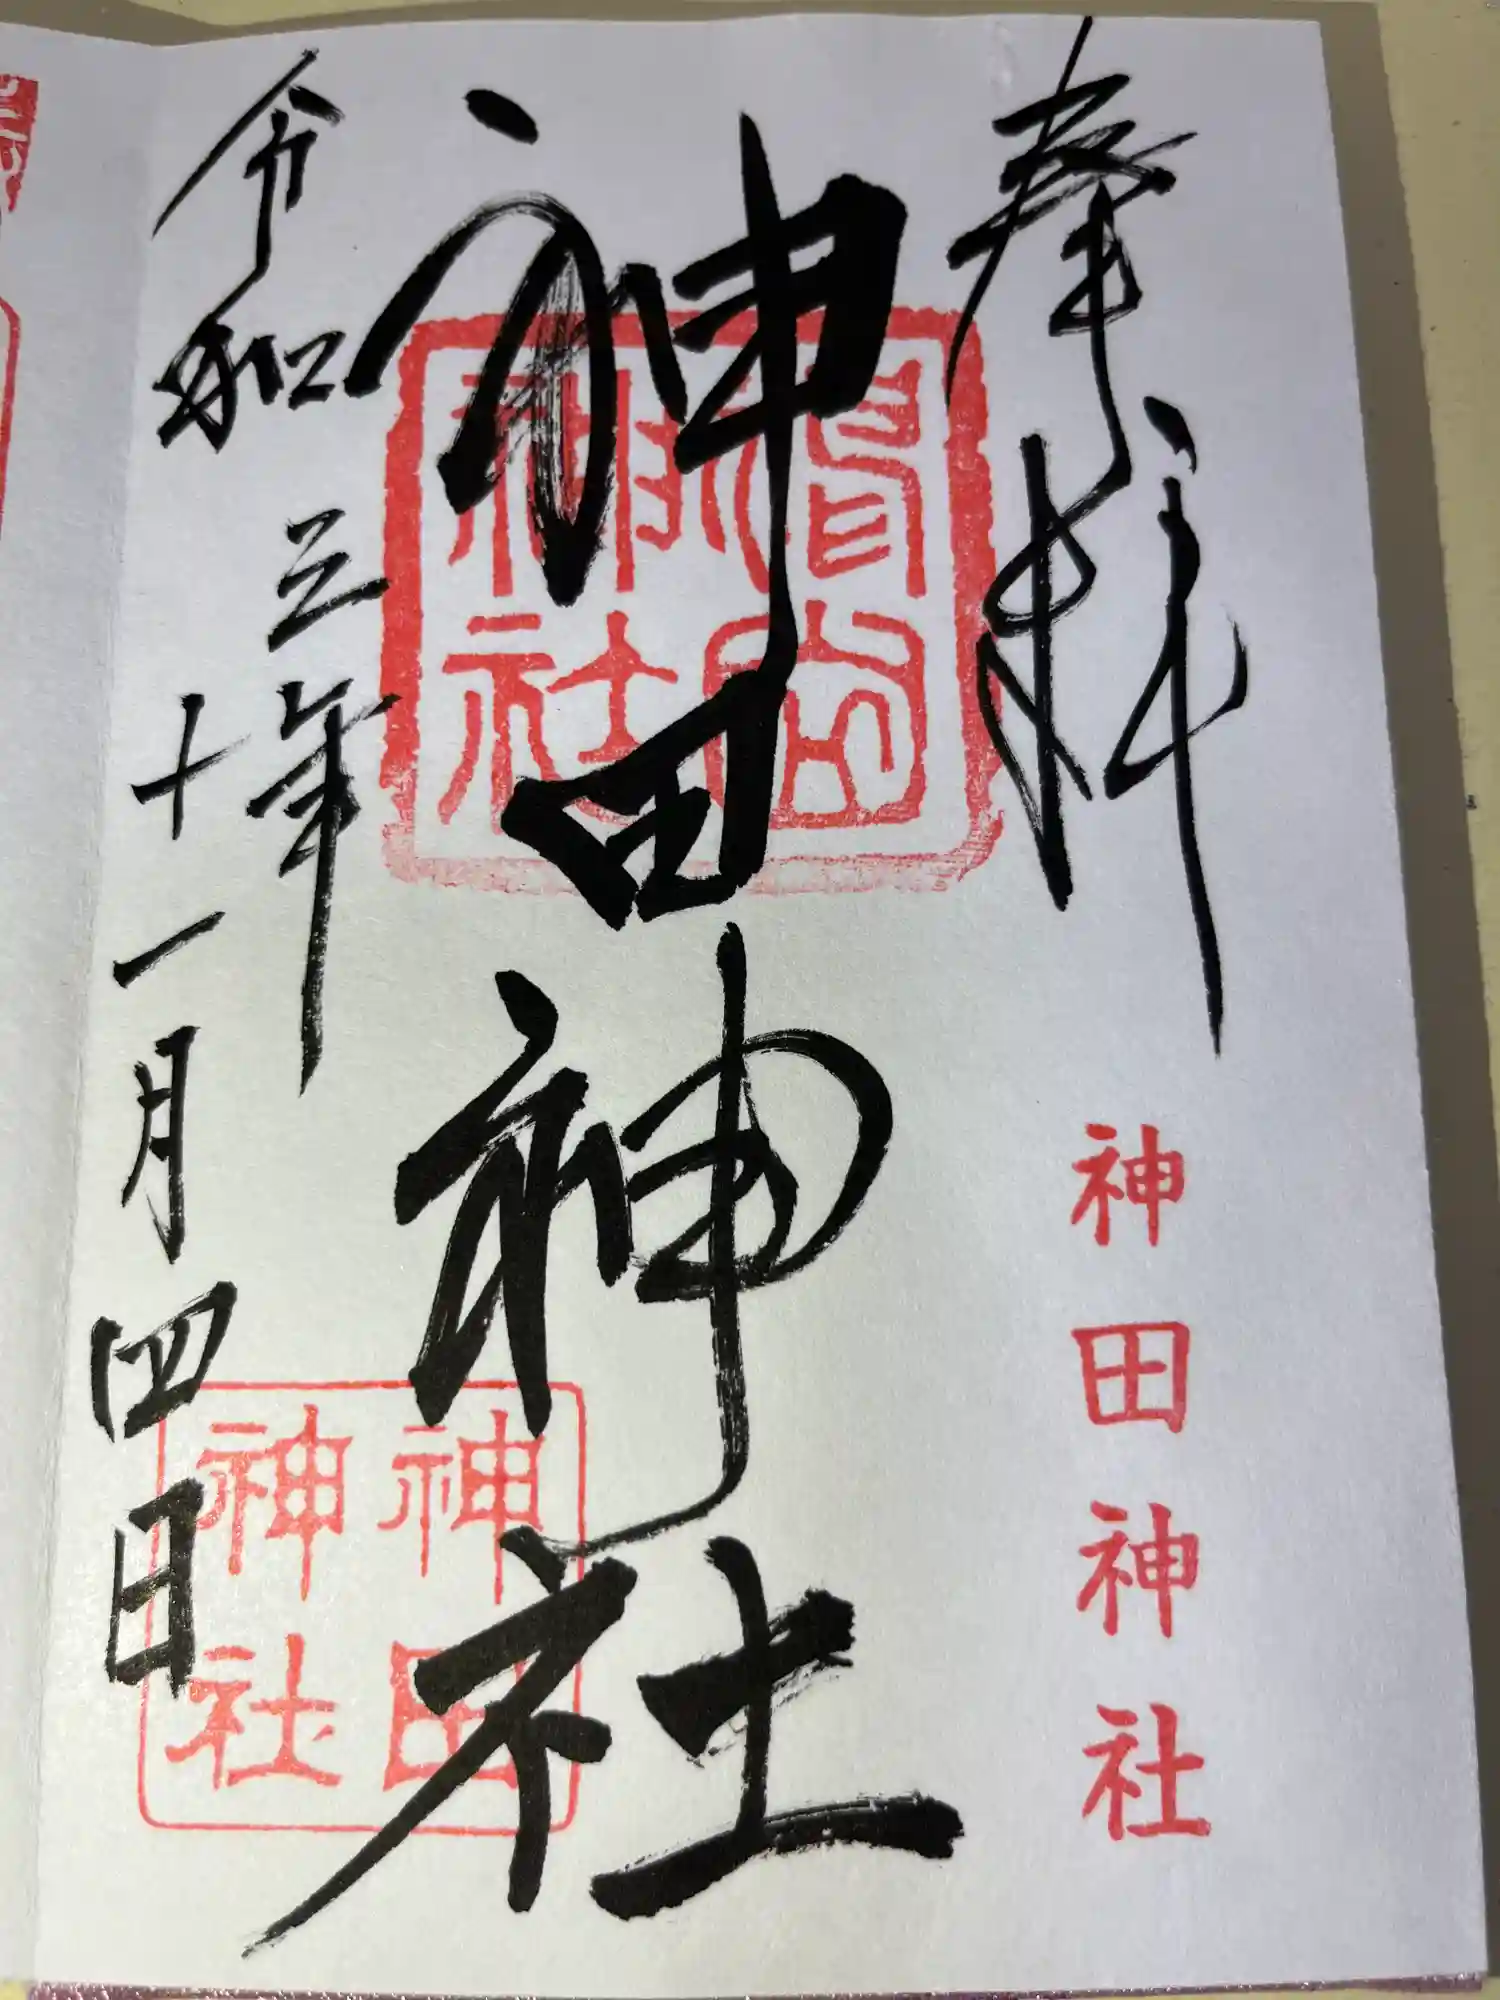 奉拝
神田神社
神田神社
令和三年
十一月四日
神田
神社